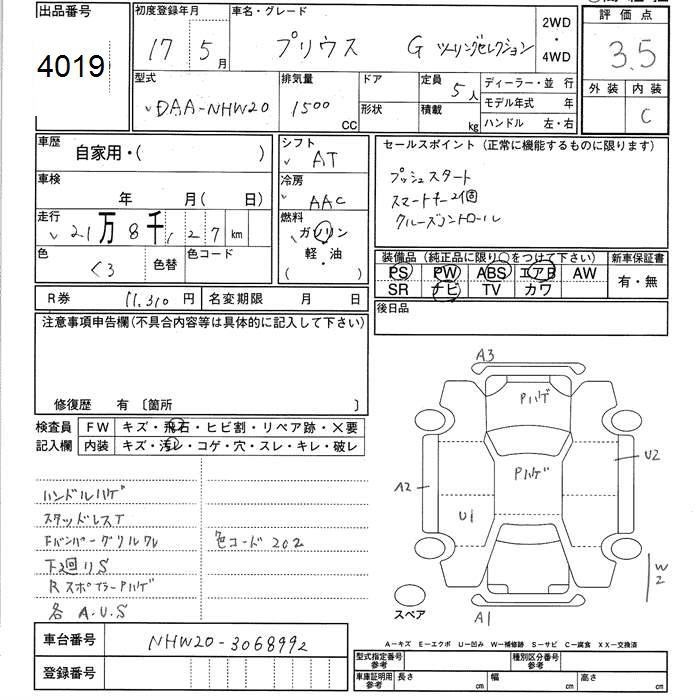 出品番号 初度登録年月 車名・グレード 2WD・4WD 評価点
4019 17 5月 プリウス G ツーリングセレクション 3.5
型式 排気量 ドア 定員 5人 ディーラー・並行 外装 内装
DAA-NHW20 1500 CC 形状 積載 kg モデル年式 年 C
ハンドル 左・右
車歴 自家用・( ) シフト AT セールスポイント (正常に機能するものに限ります)
車検 年 月(日) 冷房 AAC プッシュスタート
スマートキー2個
走行 21万8千,127km 燃料 ガソリン クルーズコントロール
軽・油
( )
色 くろ 色替 色コード 装備品 (純正品に限り○をつけて下さい) 新車保証書
PS PW ABS エアB AW 有・無
SR ナビ TV カワ
R券 11,310円 名変期限 月 日 後日品
注意事項申告欄(不具合内容等は具体的に記入して下さい)
修復歴 有 〔箇所 〕
検査員記入欄 FW キズ・飛石・ヒビ割・リペア跡・×要
内装 キズ・汚レ・コゲ・穴・スレ・キレ・破レ
ハンドルハゲ
スタッドレスT
Fバンパーグリルワレ 色コード 202
下回りS
RスポイラーPハゲ
各 A.U.S
A3
Pハゲ
Pハゲ
A2
U2
U1
W2
A1
スペア
車台番号 NHW20-3068992
登録番号
A-キズ E-エクボ U-凹み W-補修跡 S-サビ C-腐食 XX-交換済
型式指定番号 参考 種別区分番号 参考
車庫証明用 参考 長さ cm 幅 cm 高さ cm